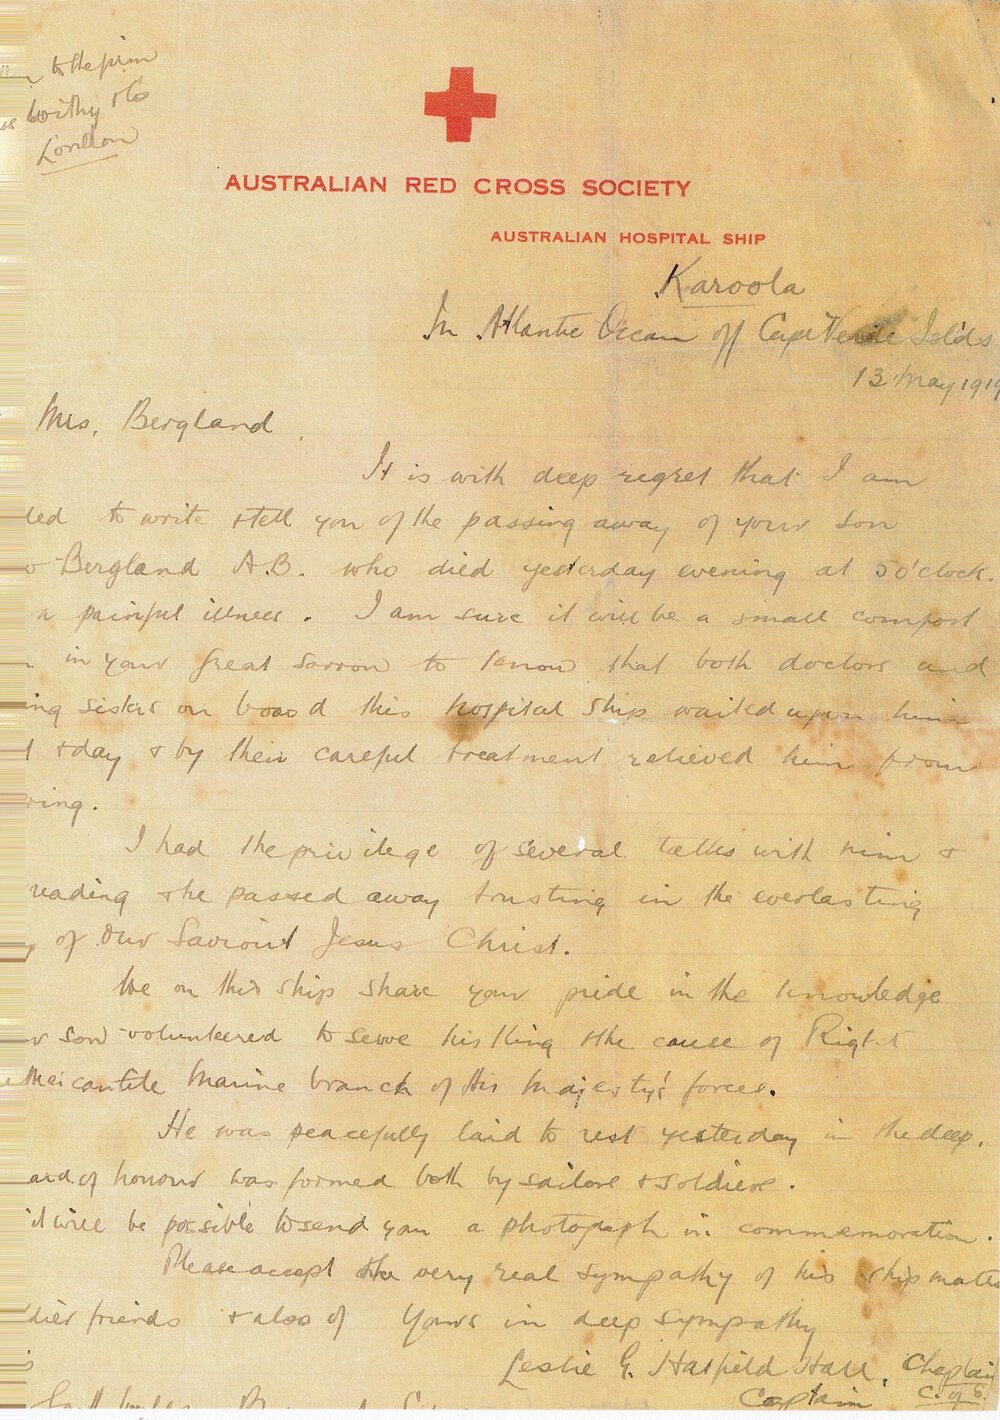 to the firm
withy & Co
London
AUSTRALIAN RED CROSS SOCIETY
AUSTRALIAN HOSPITAL SHIP
Karoola
In Atlantic Ocean off Cape Verde Isl'ds
13 May 1919
Mrs, Bergland.
It is with deep regret that I am
ded to write & tell you of the passing away of your son
o Bergland A.B. who died yesterday evening at 5 o'clock.
a painful illness. I am sure it will be a small comfort
in your great sorrow to know that both doctors and
ing sisters on board this hospital ship waited upon him
t & day & by their careful treatment relieved him from
ring.
I had the privilege of several talks with him &
reading & he passed away trusting in the everlasting
of our Saviour Jesus Christ.
We on this ship share your pride in the knowledge
r son volunteered to serve his King & the cause of Right
e Mercantile Marine branch of His Majesty's forces.
He was peacefully laid to rest yesterday in the deep.
ard of honour was formed both by sailors & soldiers.
it will be possible to send you a photograph in commemoration.
Please accept the very real sympathy of his shipmates
dier friends & also of Yours in deep sympathy
Leslie G. Hatfield Hall, Chaplain
Captain C. of E.